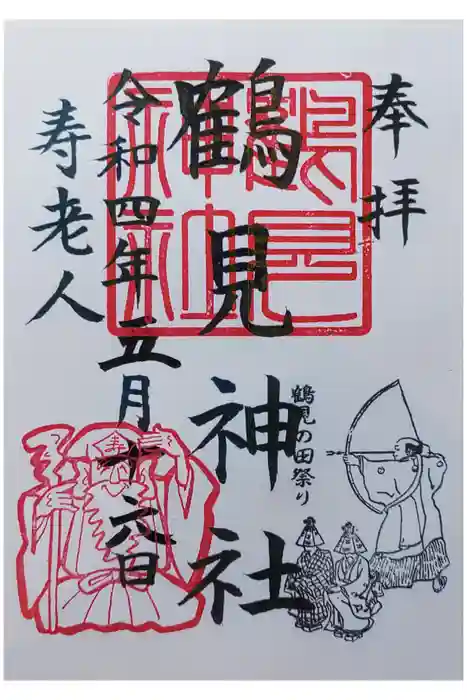 奉拝
鶴見神社
鶴見の田祭り
令和四年五月十六日
寿老人
鶴見神社